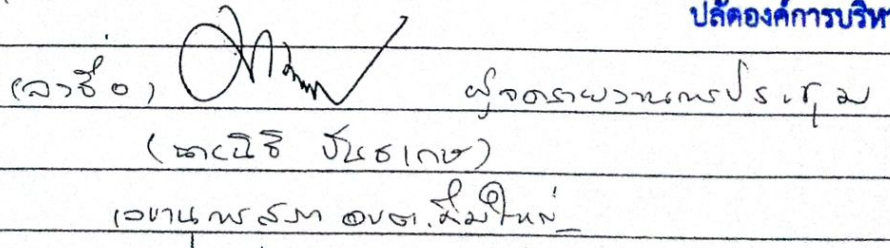 ปลัดองค์การบริห
(ลงชื่อ) ผู้จดรายงานการประชุม
(นายนิธิ ปันธเกษ)
เลขานุการสภา อบต.คึมใหญ่